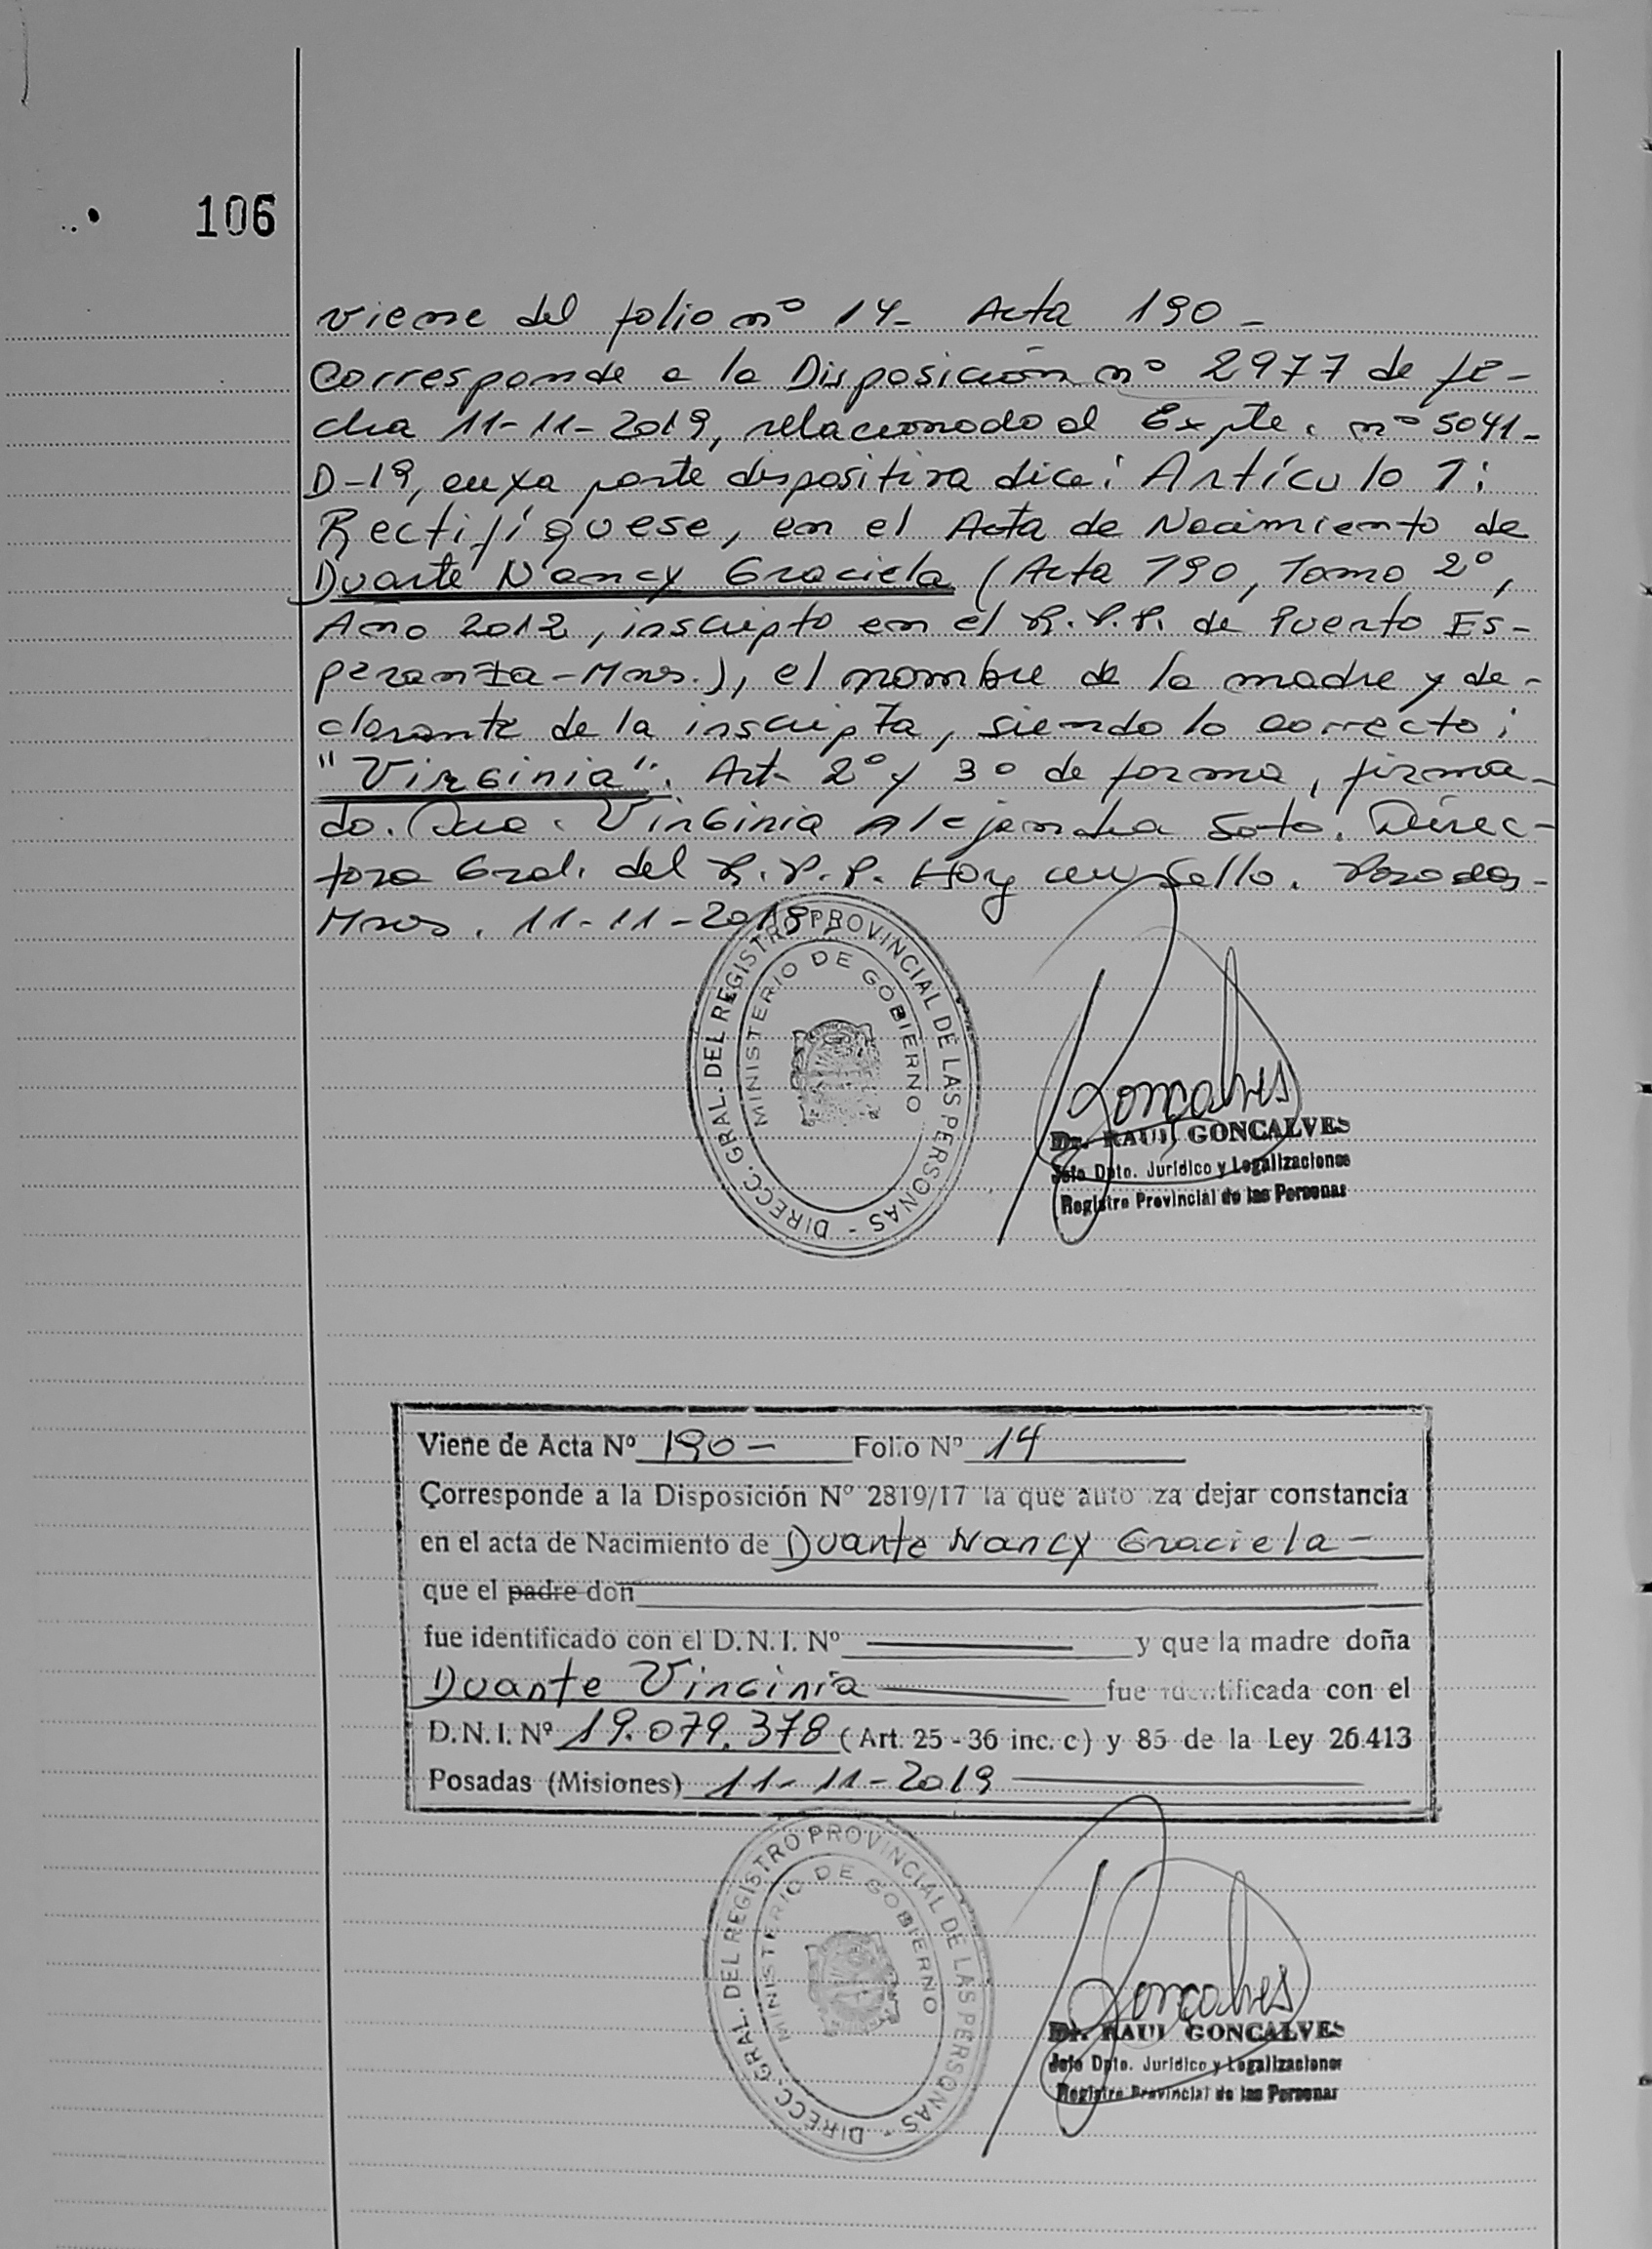 106
viene del folio nº 14- Acta 190-
Corresponde a la Disposición nº 2977 de fe-
cha 11-11-2019, relacionado al Expte. nº 5041-
D-19, cuya parte dispositiva dice: Artículo 1:
Rectifíquese, en el Acta de Nacimiento de
Duarte Nancy Graciela (Acta 190, Tomo 2º,
Año 2012, inscripto en el R.P.P. de Puerto Es-
peranza-Mnes.), el nombre de la madre y de-
clarante de la inscripta, siendo lo correcto:
"Virginia". Art- 2º y 3º de forma, firma-
do. Dra. Virginia Alejandra Soto. Direc-
tora Gral. del R.P.P. Hay un sello. Posadas-
Mnes. 11-11-2019
DIRECC. GRAL. DEL REGISTRO PROVINCIAL DE LAS PERSONAS -
MINISTERIO DE GOBIERNO
Goncalves
Dr. RAUL GONCALVES
Jefe Dpto. Jurídico y Legalizaciones
Registro Provincial de las Personas
Viene de Acta Nº 190- Folio Nº 14
Corresponde a la Disposición Nº 2819/17 la que autoriza dejar constancia
en el acta de Nacimiento de Duarte Nancy Graciela-
que el padre don
fue identificado con el D.N.I. Nº y que la madre doña
Duarte Virginia fue identificada con el
D.N.I. Nº 19.079.378 (Art. 25 - 36 inc. c) y 85 de la Ley 26.413
Posadas (Misiones) 11-11-2019
DIRECC. GRAL. DEL REGISTRO PROVINCIAL DE LAS PERSONAS -
MINISTERIO DE GOBIERNO
Goncalves
Dr. RAUL GONCALVES
Jefe Dpto. Jurídico y Legalizaciones
Registro Provincial de las Personas